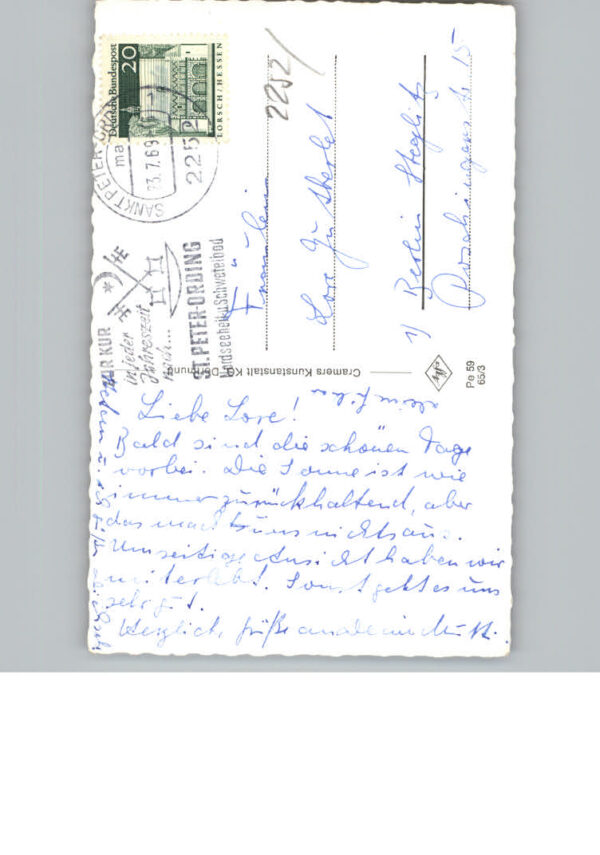 Deutsche Bundespost
20
LORSCH/HESSEN
SANKT PETER-ORDING
23.7.69
2252
KUR
in jeder
Jahreszeit
nach...
ST. PETER-ORDING
Nordseeheil u. Schwefelbad
2252/
Fräulein
Lore
1) Berlin Steglitz
15
Cramers Kunstanstalt KG, Dortmund
Pe 59
65/3
Liebe Lore!
Bald sind die schönen Tage
vorbei. Die Sonne ist wie
immer zurückhaltend, aber
das macht uns nichts aus.
Umseitige Ansicht haben wir
miterlebt. Sonst geht es uns
sehr gut.
Herzlich grüßt